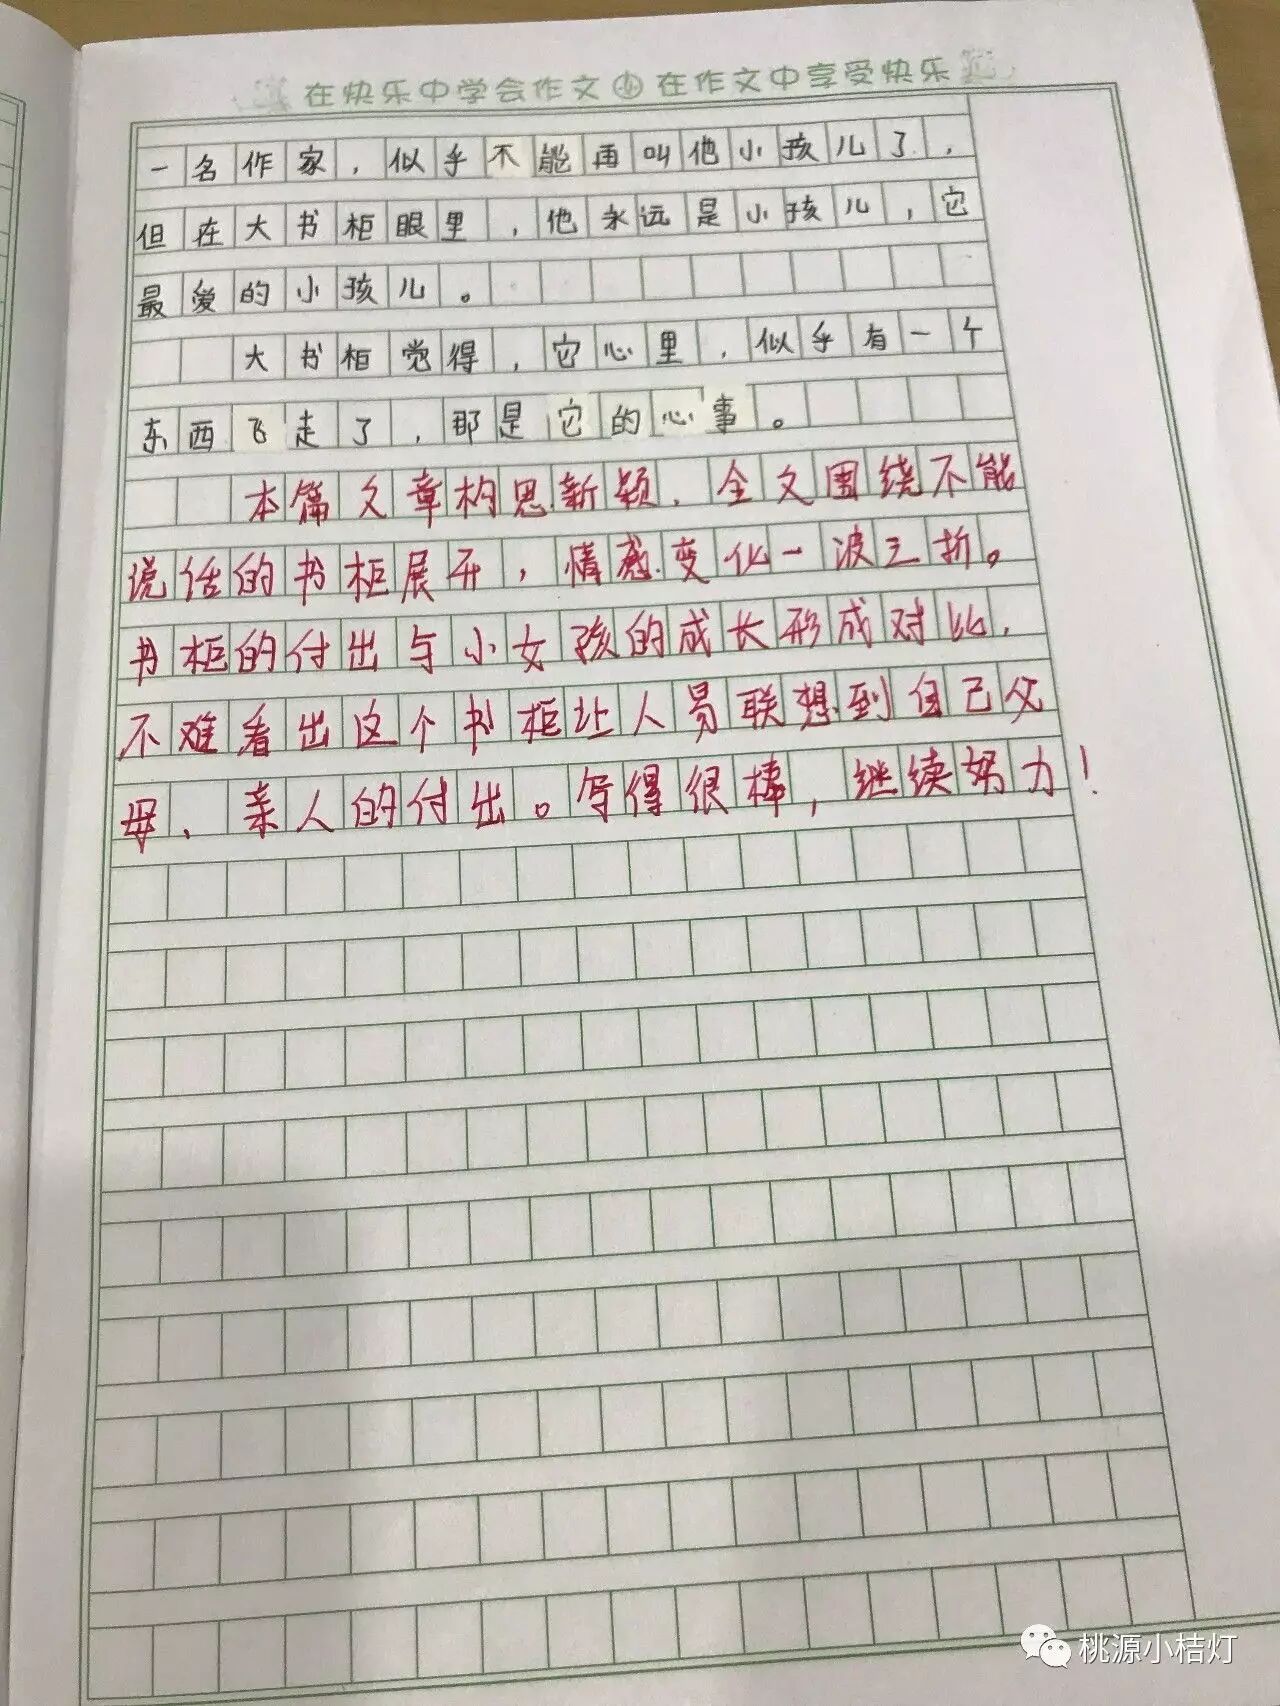 在快乐中学会作文 小 在作文中享受快乐
一名作家，似乎不能再叫他小孩儿了，
但在大书柜眼里，他永远是小孩儿，它
最爱的小孩儿。
大书柜觉得，它心里，似乎有一个
东西飞走了，那是它的心事。
本篇文章构思新颖，全文围绕不能
说话的书柜展开，情感变化一波三折。
书柜的付出与小女孩的成长形成对比，
不难看出这个书柜让人易联想到自己父
母、亲人的付出。写得很棒，继续努力！
桃源小桔灯